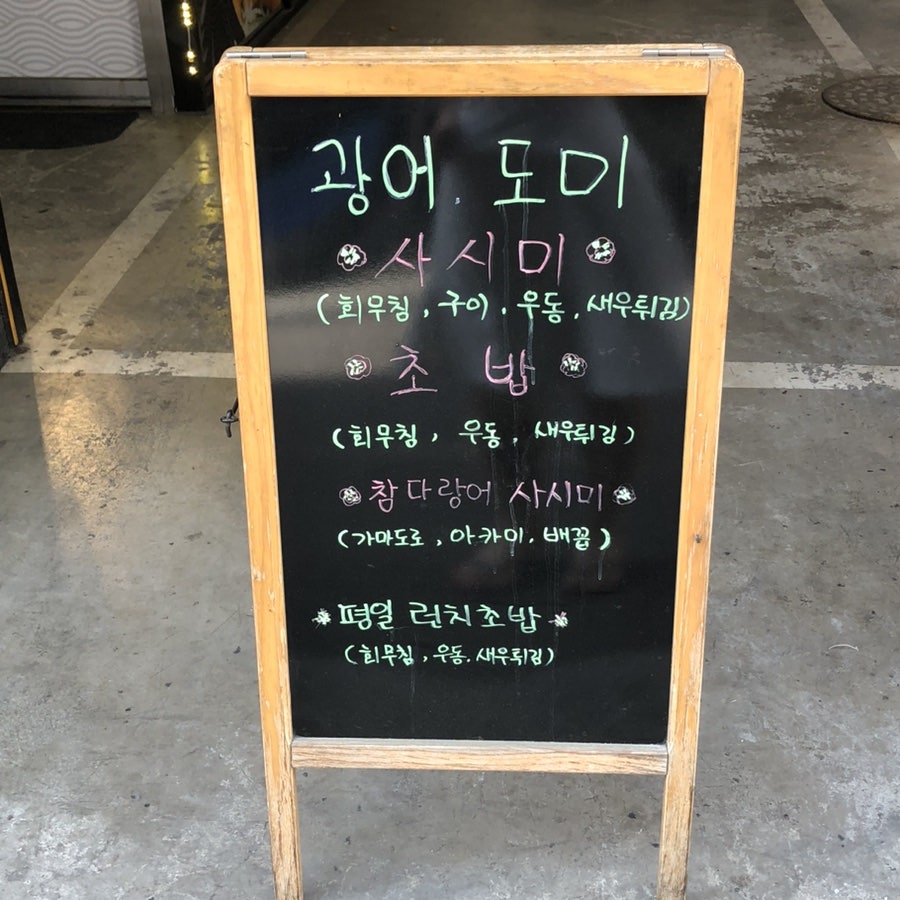 광어. 도미
사시미
(회무침, 구이, 우동, 새우튀김)
초밥
(회무침, 우동, 새우튀김)
참다랑어 사시미
(가마도로, 아카미, 배꼽)
평일 런치초밥
(회무침, 우동, 새우튀김)